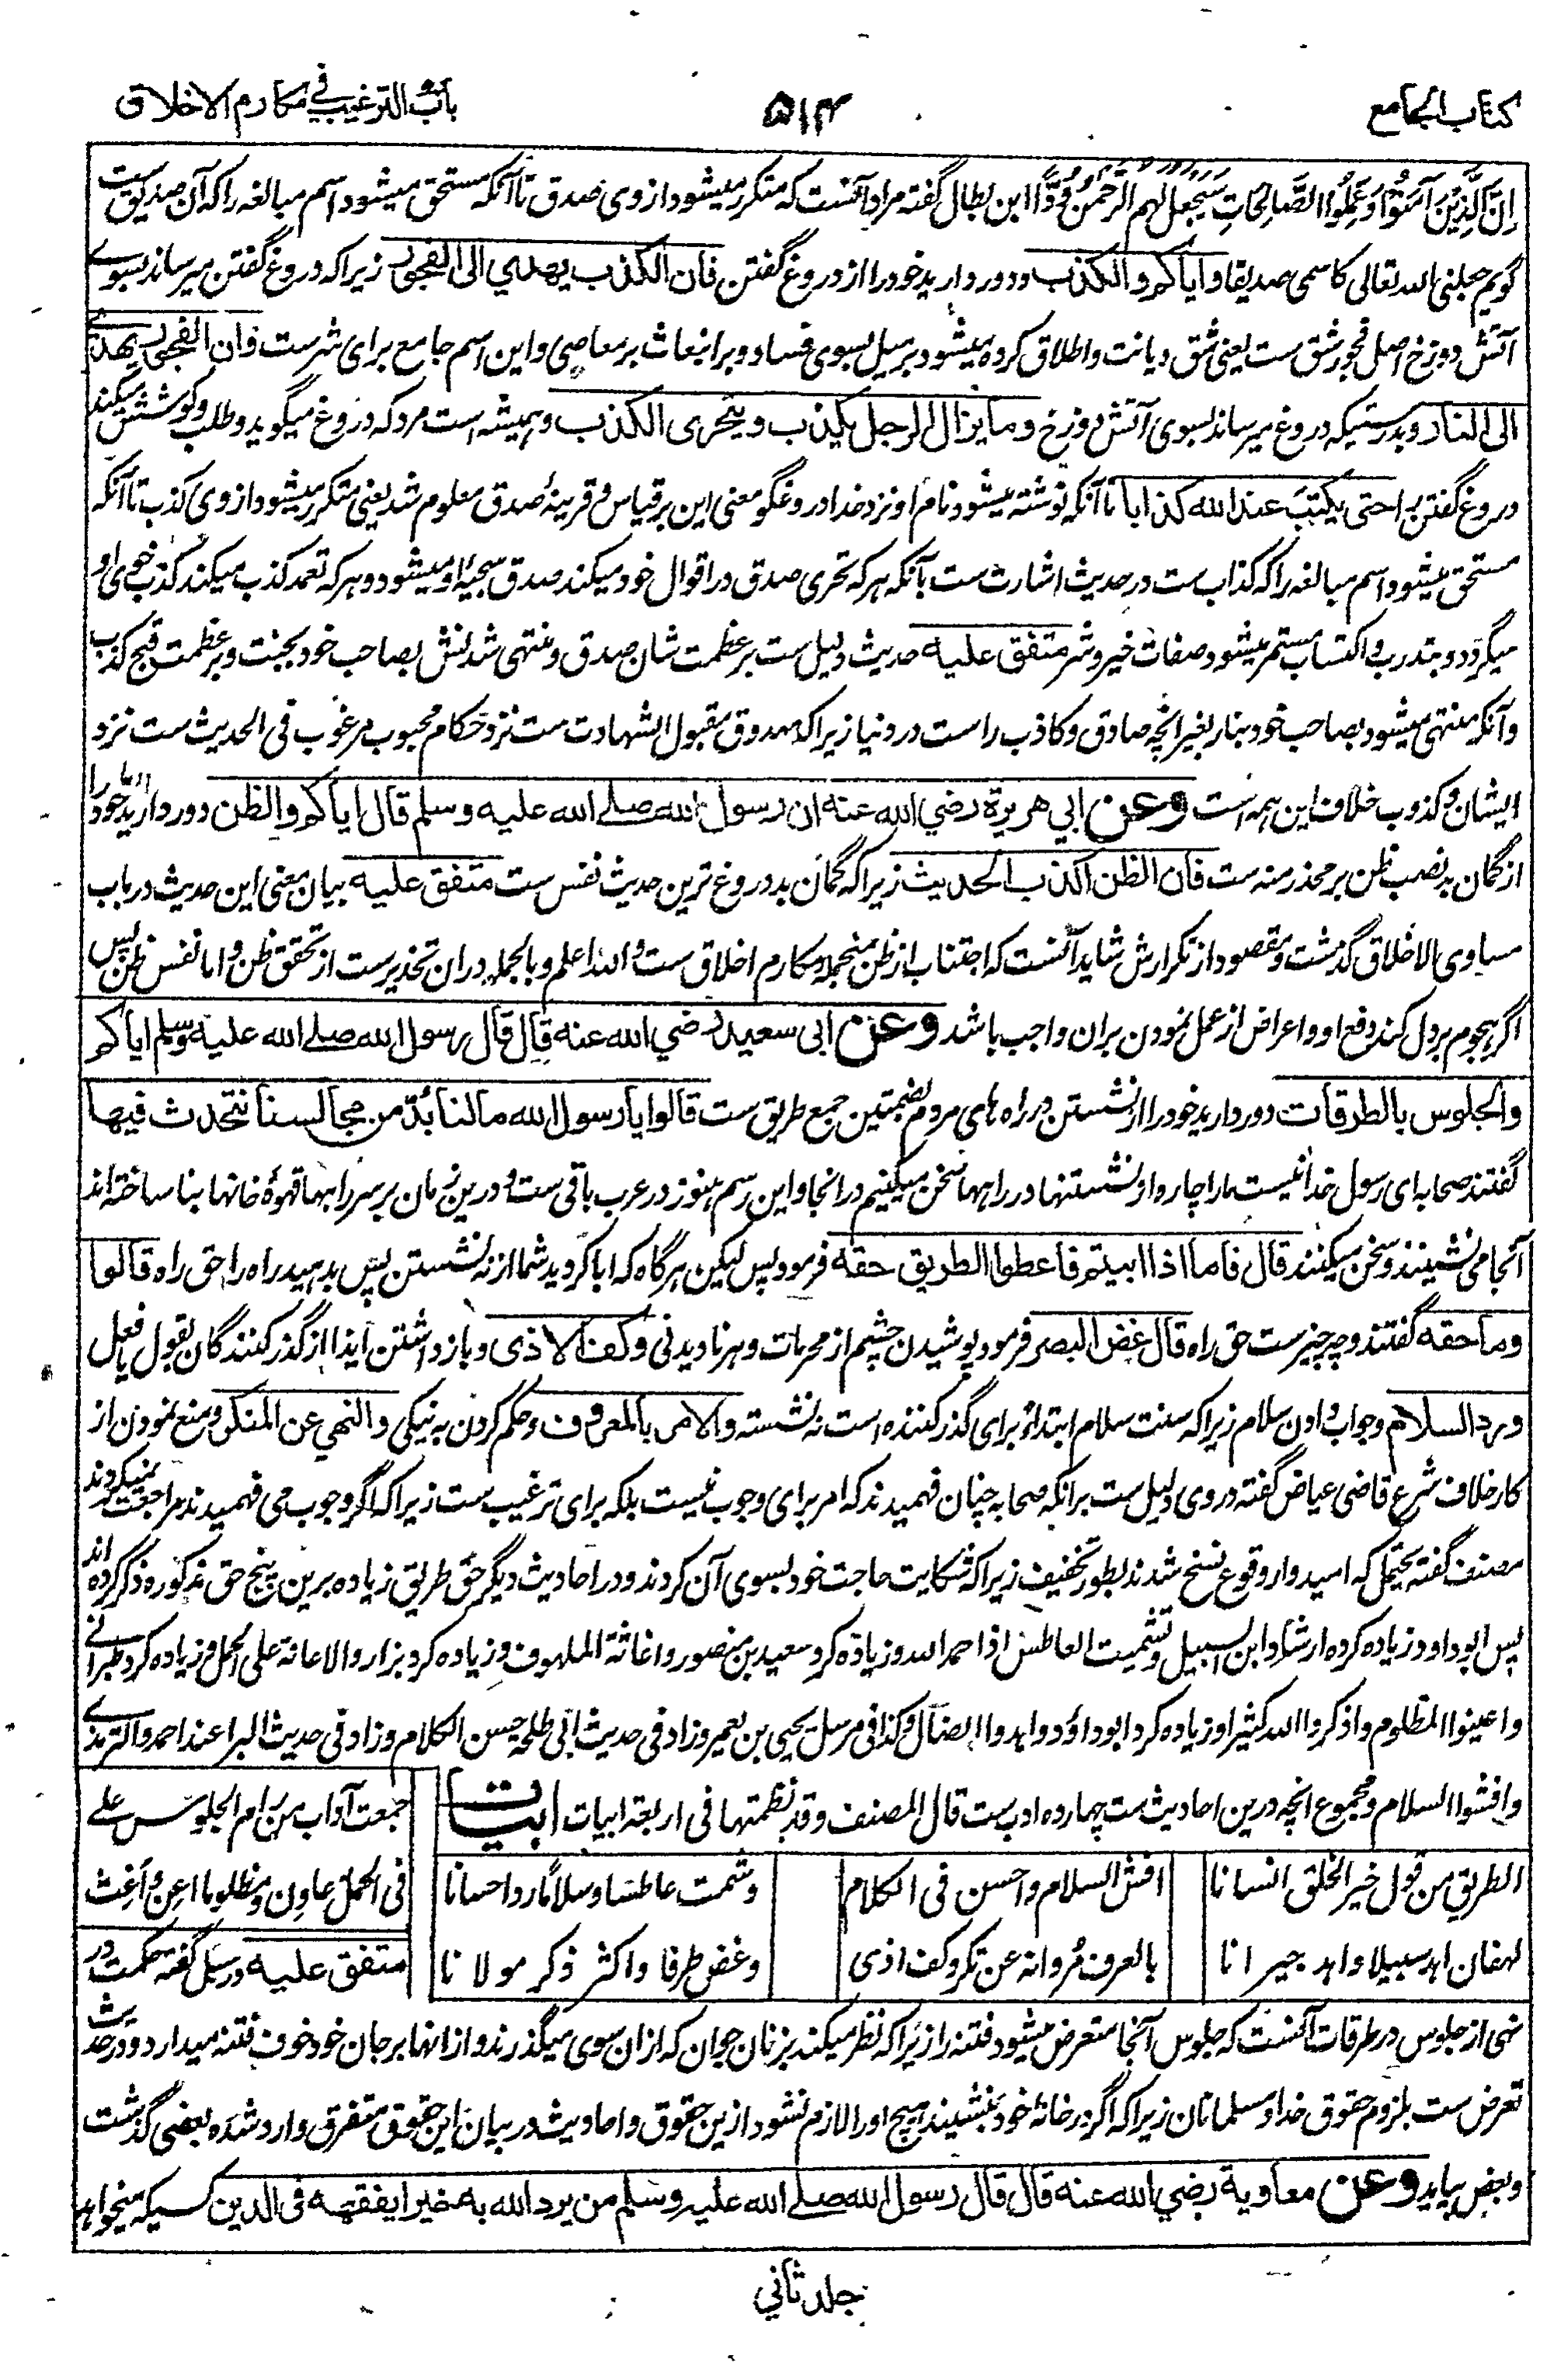 کتاب الجامع
۵۱۴
باب الترغیب فی مکارم الاخلاق
اِنَّ الَّذِیْنَ آمَنُوْا وَعَمِلُوا الصَّالِحَاتِ سَیَجْعَلُ لَہُمُ الرَّحْمٰنُ وُدًّا ابن بطال گفتہ مراد آنست کہ متکرر میشود از وی صدق تا آنکہ مستحق میشود اسم مبالغہ را کہ آن صدیق ست
گویم جعلنی اللہ تعالی کاسمی صدیقا وایاکم والکذب ودور دارید خود را از دروغ گفتن فان الکذب یھدی الی الفجور زیرا کہ دروغ گفتن میرساند بسوے
آتش دوزخ اصل فجور شق ست یعنی شق دیانت واطلاق کردہ میشود بر میل بسوی فساد وبر انبعاث بر معاصی واین اسم جامع برای شر ست فان الفجور یھدے
الی النار وبدرستیکہ دروغ میرساند بسوی آتش دوزخ وما یزال الرجل یکذب ویتحری الکذب وہمیشہ است مرد کہ دروغ میگوید وطلب وکوشش میکند
دروغ گفتن را حتی یکتب عند اللہ کذابا تا آنکہ نوشتہ میشود نام او نزد خدا دروغگو معنی این بر قیاس و قرینۂ صدق معلوم شد یعنی متکرر میشود از وی کذب تا آنکہ
مستحق میشود اسم مبالغہ را کہ کذاب ست در حدیث اشارت ست بآنکہ ہر کہ تحری صدق در اقوال خود میکند صدق سجیۂ او میشود وہر کہ تعمد کذب میکند کذب خوی او
میگردد وبتدرب واکتساب مستمر میشود صفات خیر وشر متفق علیہ حدیث دلیل ست بر عظمت شان صدق ومنتہی شدنش بصاحب خود بجنت وبر عظمت قبح کذب
وآنکہ منتہی میشود بصاحب خود بنار بغیر آنچہ صادق وکاذب را ست در دنیا زیرا کہ صدوق مقبول الشہادت ست نزد حکام محبوب مرغوب فی الحدیث ست نزد
ایشان وکذوب خلاف این ہمہ است وعن ابی ھریرۃ رضی اللہ عنہ ان رسول اللہ صلے اللہ علیہ وسلم قال ایاکم والظن دور دارید خود را
از گمان بد نصب ظن بر محذر منہ ست فان الظن اکذب الحدیث زیرا کہ گمان بد دروغ ترین حدیث نفس ست متفق علیہ بیان معنی این حدیث در باب
مساوی الاخلاق گذشت ومقصود از تکرارش شاید آنست کہ اجتناب از ظن منجملۂ مکارم اخلاق ست واللہ اعلم وبالجملہ در ان تحذیر ست از تحقق ظن واما نفس ظن پس
اگر ہجوم بر دل کند دفع او واعراض از عمل نمودن بران واجب باشد وعن ابی سعید رضی اللہ عنہ قال قال رسول اللہ صلے اللہ علیہ وسلم ایاکم
والجلوس بالطرقات دور دارید خود را از نشستن در راہ ہای مردم بضمتین جمع طریق ست قالوا یا رسول اللہ مالنا بُدٌّ من مجالسنا نتحدث فیھا
گفتند صحابہ ای رسول خدا نیست ما را چارہ از نشستنہا در راہہا سخن میکنیم در انجا واین رسم ہنوز در عرب باقی ست ودرین زمان بر سر راہہا قہوہ خانہا بنا ساختہ اند
آنجا می نشینند وسخن میکنند قال فاما اذا ابیتم فاعطوا الطریق حقہ فرمود پس لیکن ہر گاہ کہ ابا کردید شما از نہ نشستن پس بدہید راہ را حق راہ قالوا
وما حقہ گفتند وچہ چیز ست حق راہ قال غض البصر فرمود پوشیدن چشم از محرمات وہر نادیدنی وکف الاذی وباز داشتن ایذا از گذر کنندگان بقول یا فعل
ورد السلام وجواب دادن سلام زیرا کہ سنت سلام ابتداءً برای گذر کنندہ است نہ نشستہ والامر بالمعروف وحکم کردن بہ نیکی والنھی عن المنکر ومنع نمودن از
کار خلاف شرع قاضی عیاض گفتہ در وی دلیل ست بر انکہ صحابہ چنان فہمیدند کہ امر برای وجوب نیست بلکہ برای ترغیب ست زیرا کہ اگر وجوب می فہمیدند مراجعت نمیکردند
مصنف گفتہ یحتمل کہ امیدوار وقوع نسخ شدند بطور تخفیف زیرا کہ شکایت حاجت خود بسوی آن کردند ودر احادیث دیگر حق طریق زیادہ برین پنج حق مذکورہ ذکر کردہ اند
پس ابو داود زیادہ کردہ ارشاد ابن السبیل وتشمیت العاطس اذا حمد اللہ وزیادہ کرد سعید بن منصور واغاثۃ الملہوف وزیادہ کرد بزار والاعانۃ علی الحمل وزیادہ کرد طبرانے
واعینوا المظلوم واذکروا اللہ کثیرا وزیادہ کرد ابو داؤد واہدوا الضال وکذا فی مرسل یحیی بن یعمر وزاد فی حدیث ابی طلحہ حسن الکلام وزاد فی حدیث البراء عند احمد والترمذے
وافشوا السلام ومجموع آنچہ درین احادیث ست چہاردہ ادب ست قال المصنف وقد نظمتہا فی اربعۃ ابیات ابیات جمعت آداب من رام الجلوس علے
الطریق من قول خیر الخلق انسانا افش السلام واحسن فی الکلام وشمت عاطسا وسلاما رد احسانا فی الحمل عاون ومظلوما اعن واغث
لہفان اہد سبیلا واہد حیرانا بالعرف مُر وانہ عن نکر وکف اذی وغض طرفا واکثر ذکر مولانا متفق علیہ در سبل گفتہ حکمت در
نہی از جلوس در طرقات آنست کہ جلوس آنجا متعرض میشود فتنہ را زیرا کہ نظر میکند بزنان جوان کہ ازان سوی میگذرند و از انہا بر جان خود خوف فتنہ میدارد ودر حدیث
تعرض ست بلزوم حقوق خدا ومسلمانان زیرا کہ اگر در خانۂ خود بنشیند ہیچ او را لازم نشود ازین حقوق واحادیث در بیان این حقوق متفرق وارد شدہ بعضی گذشت
وبعض بیاید وعن معاویۃ رضی اللہ عنہ قال قال رسول اللہ صلے اللہ علیہ وسلم من یرد اللہ بہ خیرا یفقہہ فی الدین کسیکہ میخواہد
جلد ثانی